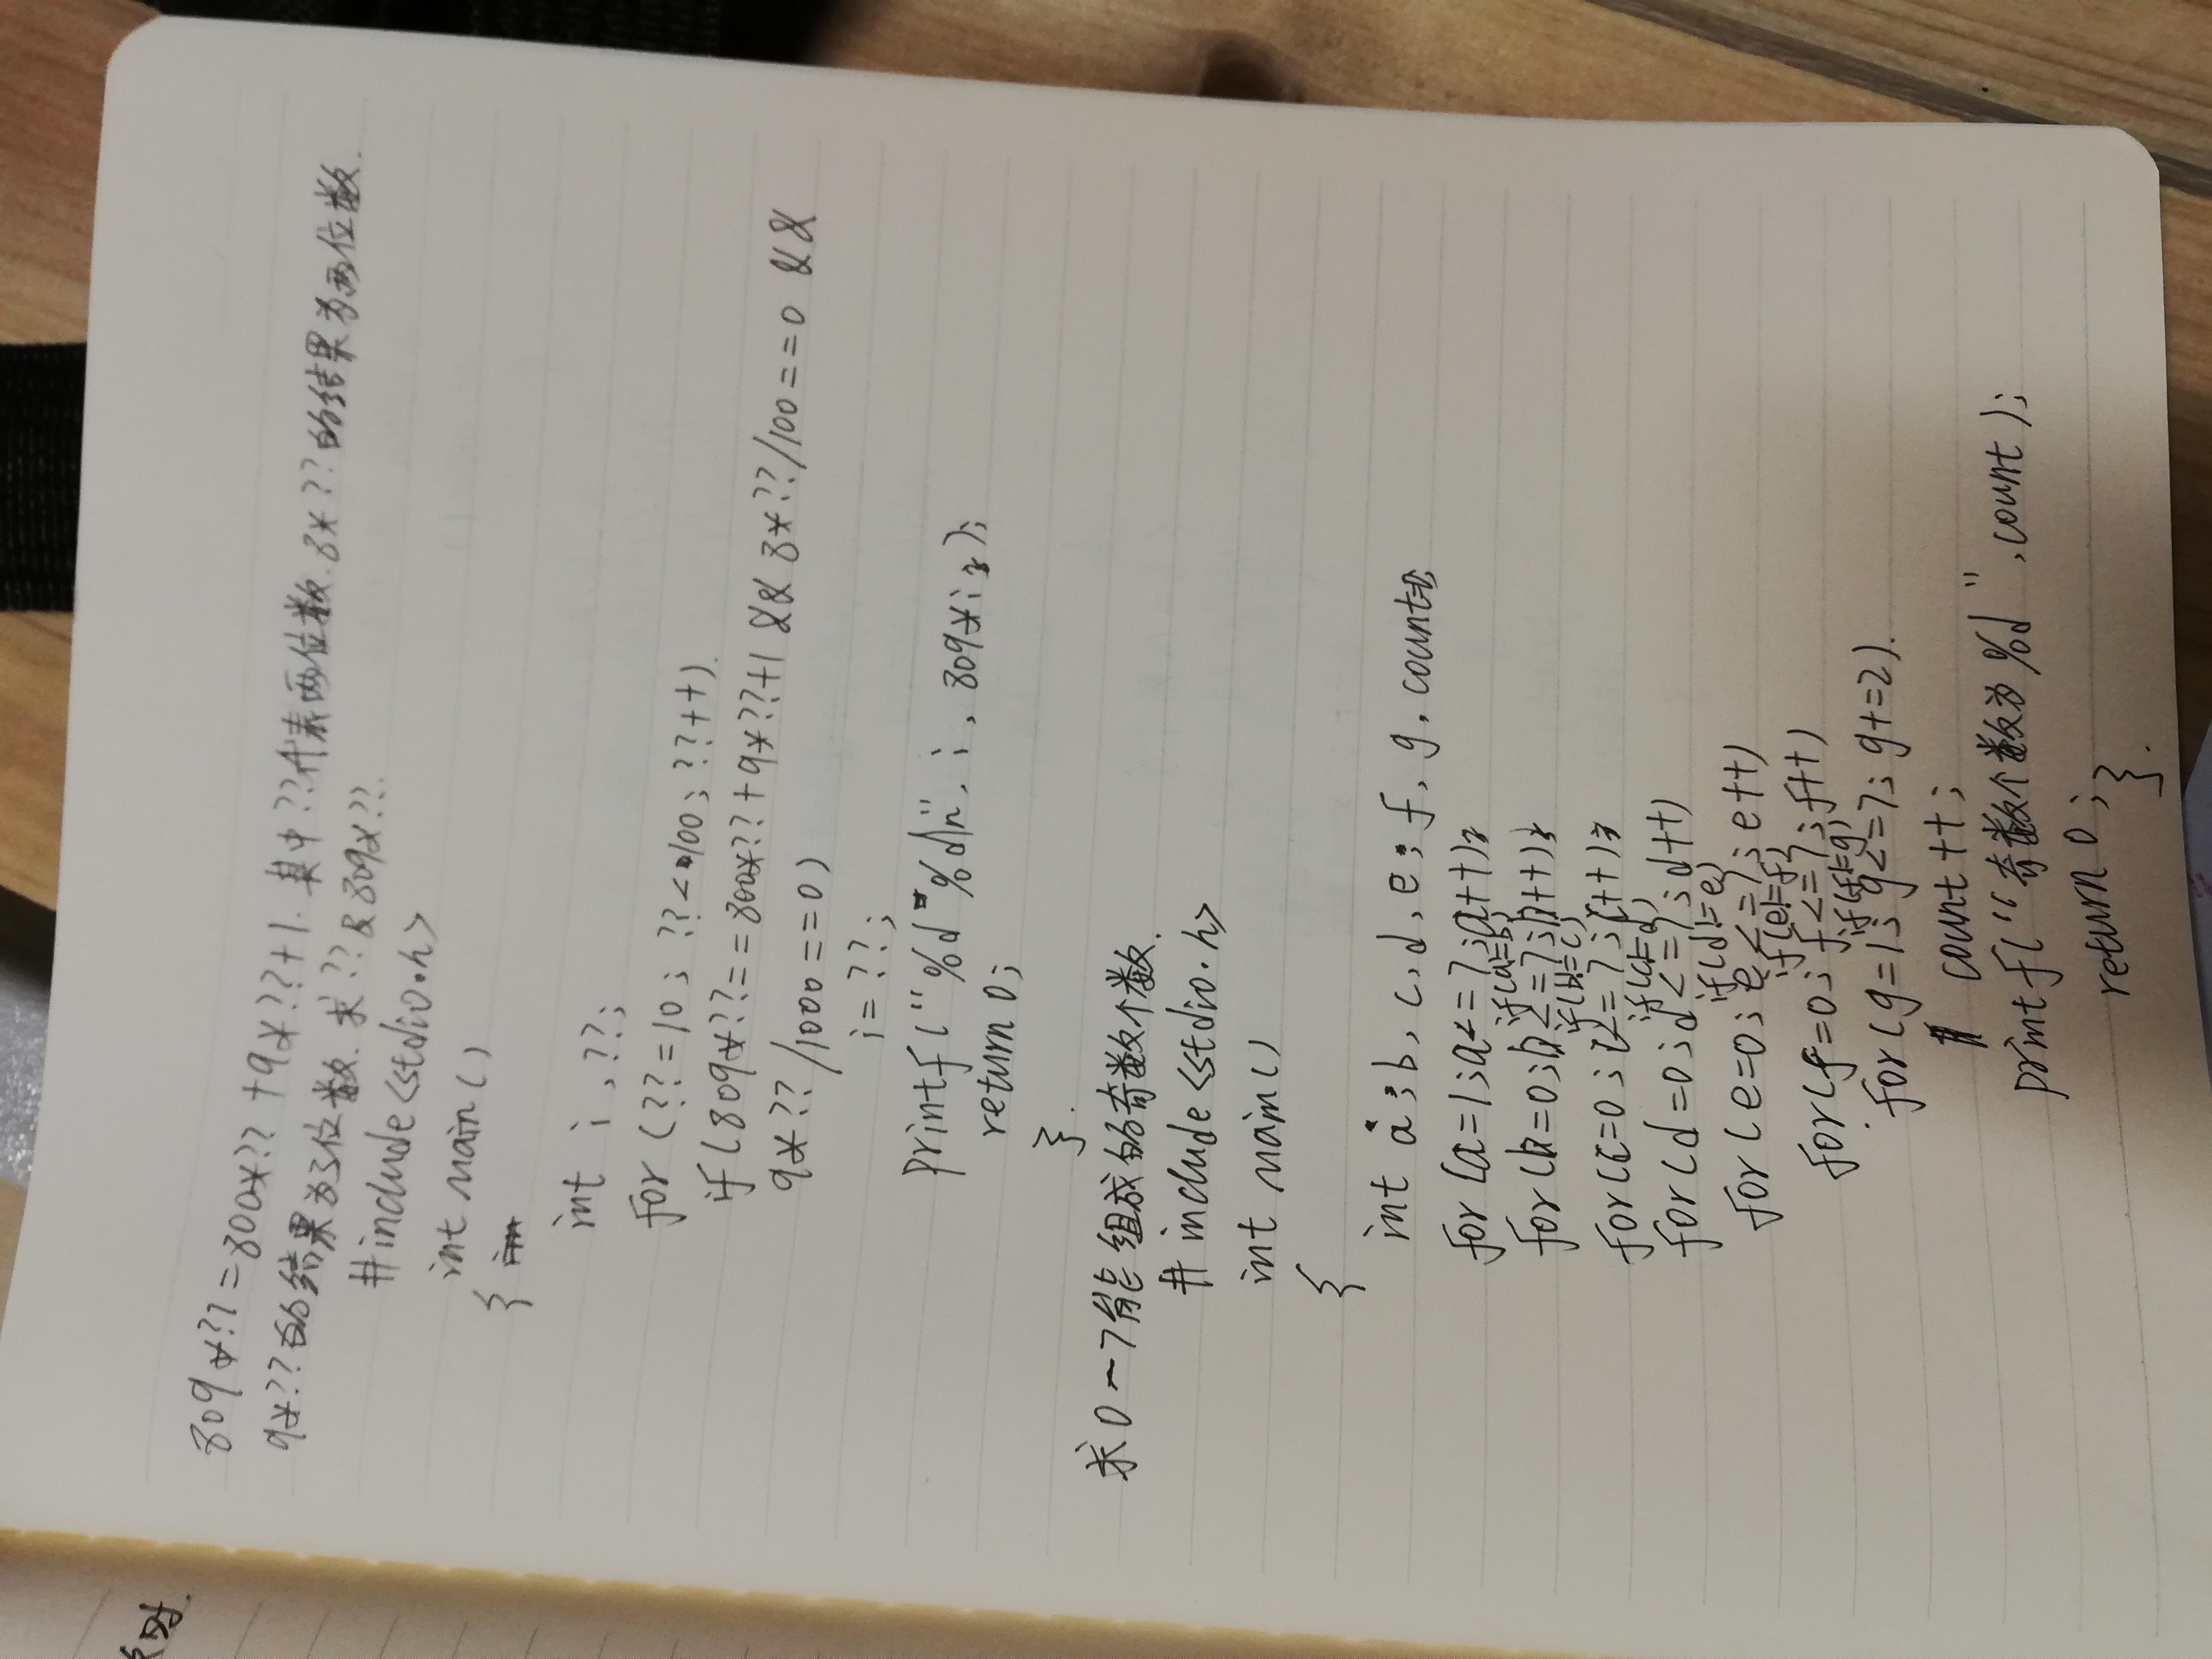 809*??=800*??+9*??+1.其中??代表两位数.8*??的结果为两位数.
9*??的结果为3位数.求??&809*??.
#include<stdio.h>
int main()
{
int i,??;
for(??=10;??<100;??++).
if(809*??==800*??+9*??+1&&8*??/100==0&&
9*??/1000==0)
i=??;
printf("%d %d\n",i,809*i);
return 0;
}.
求0—7能组成的奇数个数.
#include<stdio.h>
int main()
{
int a,b,c,d,e,f,g,count=0;
for(a=1;a<=7;a++)
if(a!=b)
for(b=0;b<=7;b++)
if(b!=c)
for(c=0;c<=7;c++)
if(c!=d)
for(d=0;d<=7;d++)
if(d!=e)
for(e=0;e<=7;e++)
if(e!=f)
for(f=0;f<=7;f++)
if(f!=g)
for(g=1;g<=7;g+=2).
count++;
printf("奇数个数为%d",count);
return 0;
}.
对.